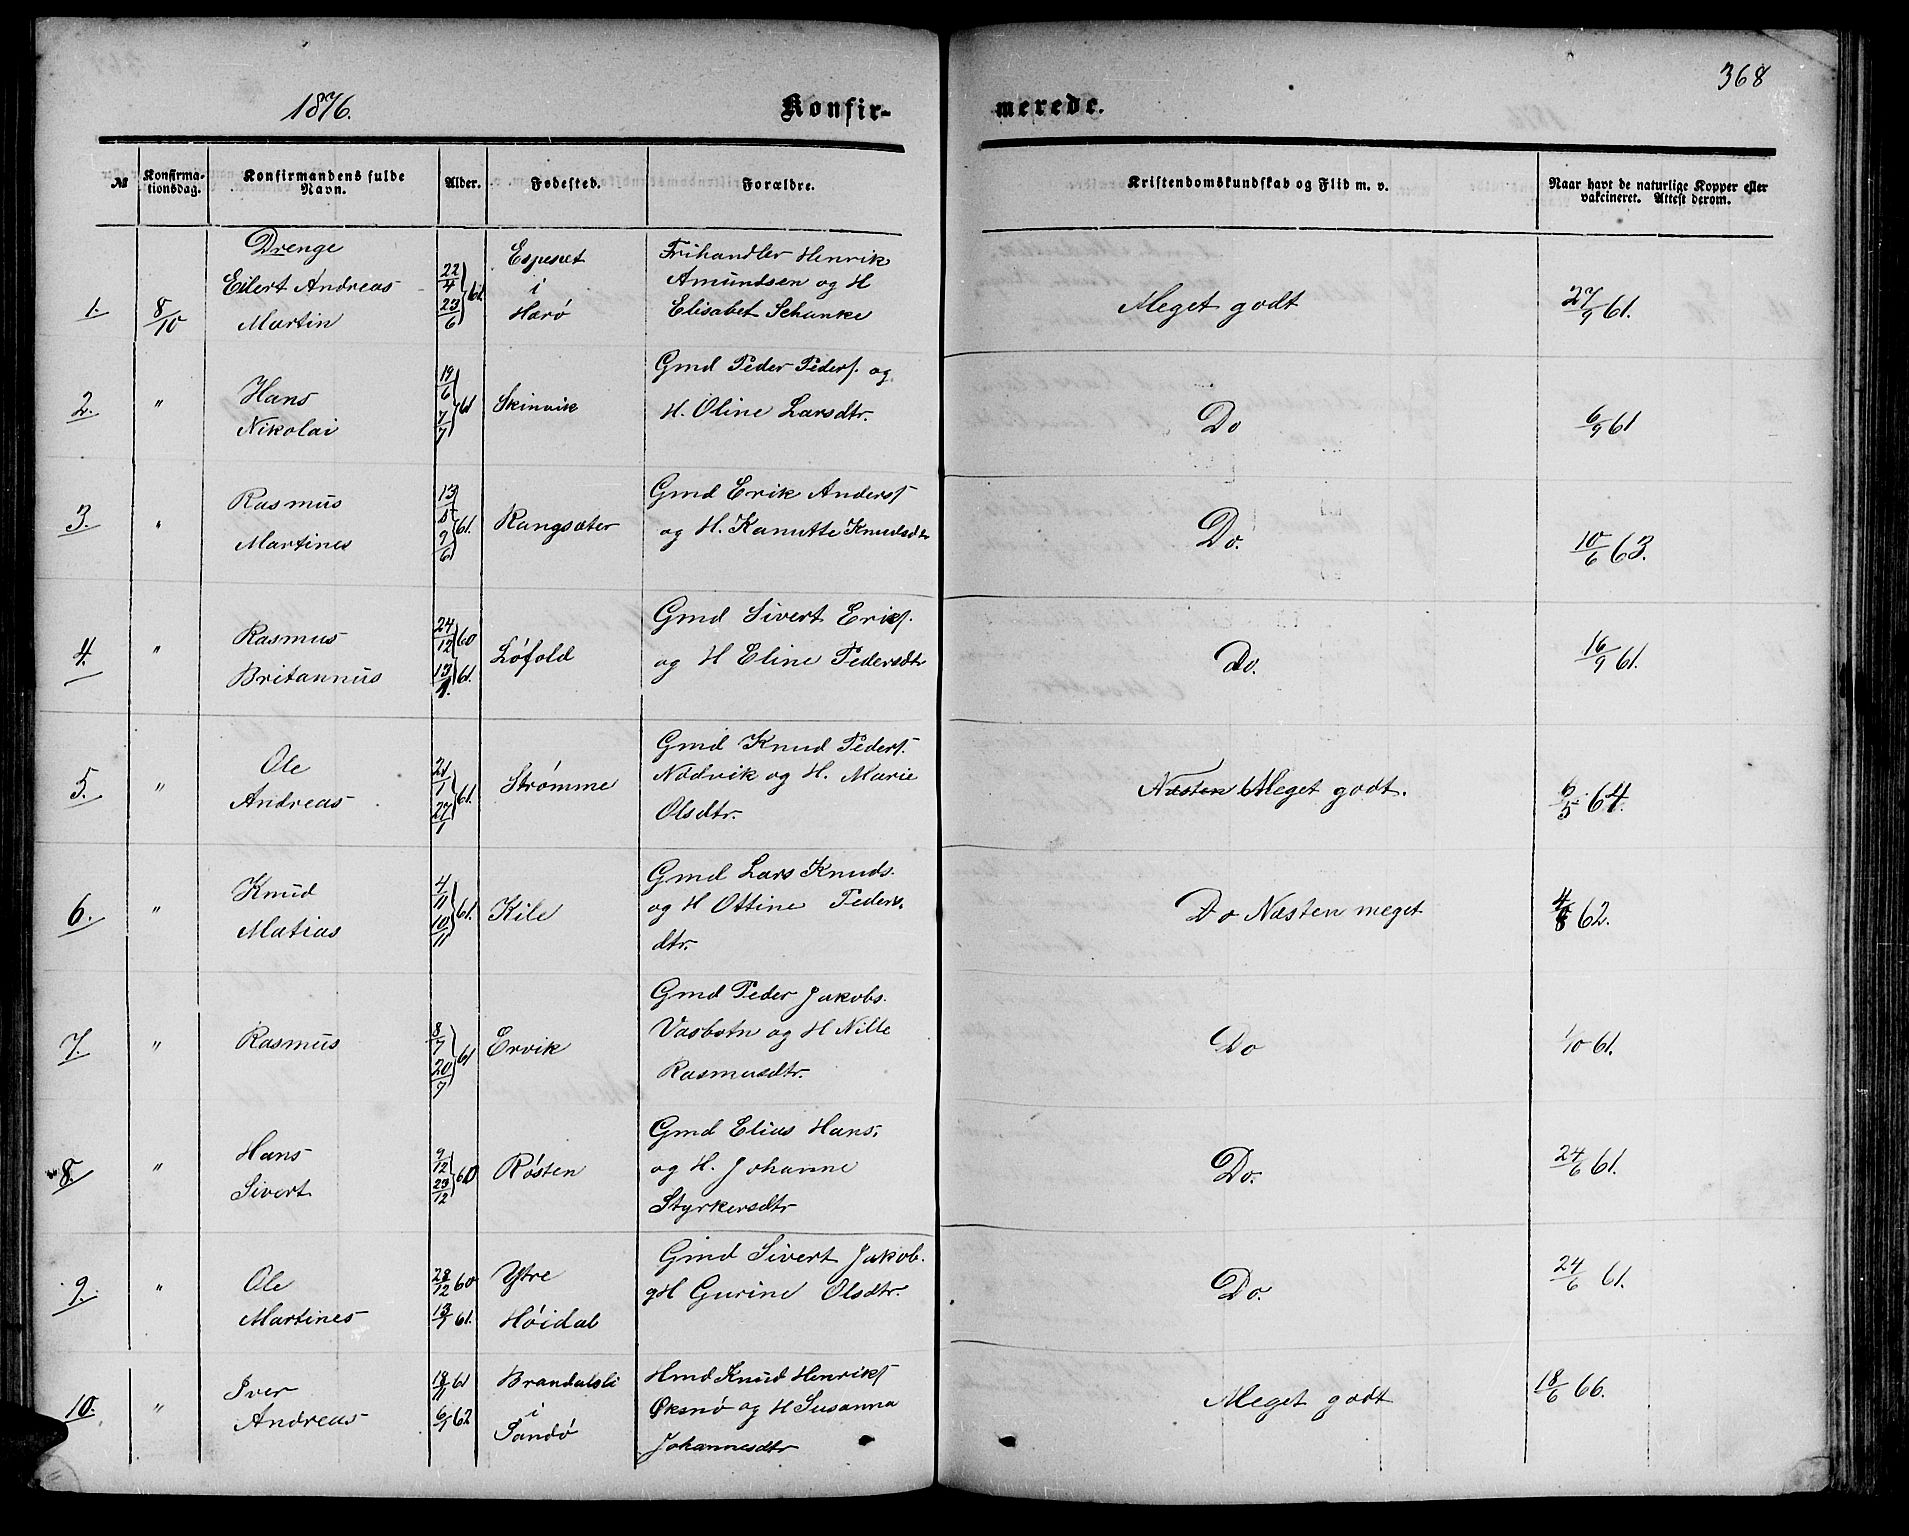 368
1876.
Konfir-
merede.
№ Konfirma-tionsdag. Konfirmandens fulde Navn. Alder. Fødested. Forældre. Kristendomskundskab og Flid m. v. Naar havt de naturlige Kopper eller vakcineret. Attest derom.
Drenge
1. 8/10 Eilert Andreas Martin 22/4 23/6 61. i Harø Frihandler Henrik Amundsen og H Elisabet Schanke Meget godt 27/9 61.
2. " Hans Nikolai 19/6 7/7 61 Skinvik Gmd Peder Peders. og H. Oline Larsdtr. Do 6/9 61
3. " Rasmus Martines 13/5 9/6 61. Rangsæter Gmd Erik Anders. og H. Kanutte Knudsdtr Do. 10/6 63.
4. " Rasmus Britannus 24/12 60 13/1. 61. Løfold Gmd Sivert Eriks. og H Eline Pedersdtr Do. 16/9 61.
5. " Ole Andreas 21/1 27/1 61. Strømme Gmd Knud Peders. Nødvik og H. Marie Olsdtr. Næsten Meget godt. 6/5 64.
6. " Knud Matias 4/11 10/11 61. Kile Gmd Lars Knuds. og H Ottine Peders. dtr. Do Næsten meget 4/8 62.
7. " Rasmus 8/7 20/7 61 Ervik Gmd Peder Jakobs. Vasbotn og H Nille Rasmusdtr. Do 1/10 61.
8. " Hans Sivert 9/12 23/12 60 Røsten Gmd Elias Hans. og H. Johanne Styrkersdtr Do. 24/6 61.
9. " Ole Martines 28/12 60 13/1 61. Ytre Høidal Gmd Sivert Jakob. gH Gurine Olsdtr. Do. 24/6 61.
10. " Iver Andreas 18/11 61 6/1 62 Brandalsli i Sandø Hmd Knud Henriks. Øksnø og H Susanna Johannesdtr Meget godt 18/6 66.